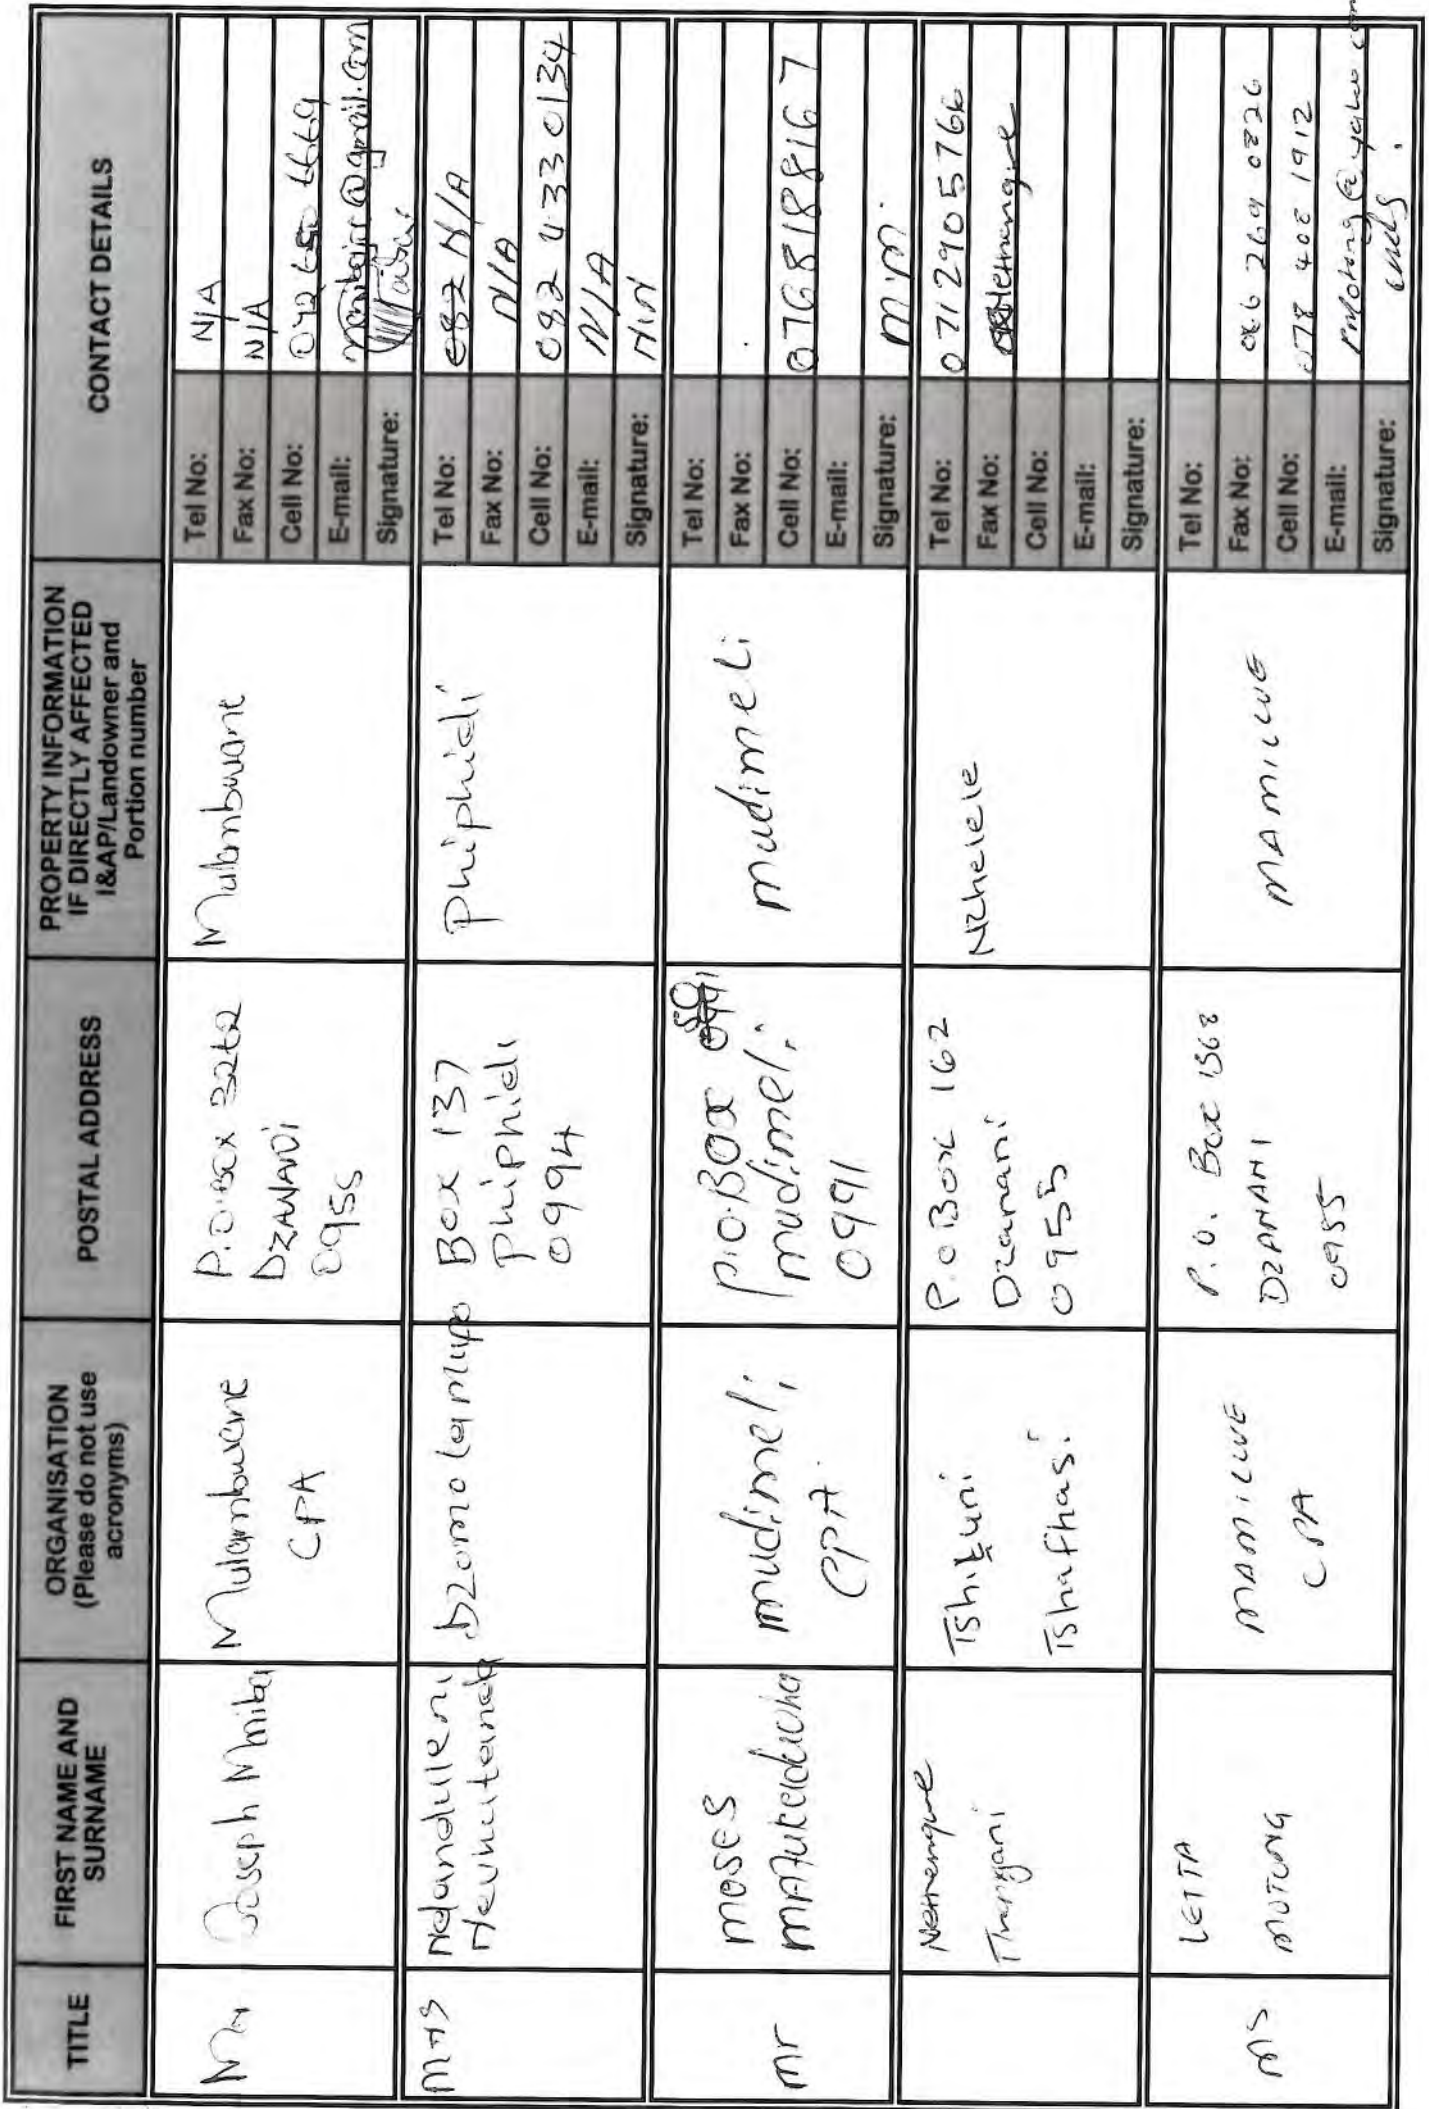 TITLE
FIRST NAME AND
SURNAME
ORGANISATION
(Please do not use
acronyms)
POSTAL ADDRESS
PROPERTY INFORMATION
IF DIRECTLY AFFECTED
I&AP/Landowner and
Portion number
CONTACT DETAILS
Mr
Joseph Maiba
Mulambwane
CPA
P.O.Box
DZANANI
0955
Mulambwane
Tel No: N/A
Fax No: N/A
Cell No:
E-mail:
Signature:
Mrs
Ndandulleni
Dzomo la mupo
Box 137
Phiphidi
0994
Phiphidi
Tel No: 082 N/A
Fax No: N/A
Cell No: 082 433 0134
E-mail: N/A
Signature: N.N
mr
moses
mudimeli
CPA
P.O.BOX
mudimeli
0991
mudimeli
Tel No:
Fax No:
Cell No: 0768188167
E-mail:
Signature: m.m
Thangani
Tshiṱuni
Tshafhasi
P.O Box 162
Dzanani
0955
Nzhelele
Tel No: 0712905766
Fax No:
Cell No:
E-mail:
Signature:
MS
LETTA
MOTONG
MAMILWE
CPA
P.O. Box 1568
DZANANI
0955
MAMILWE
Tel No:
Fax No: 086 269 0226
Cell No: 078 408 1912
E-mail:
Signature: